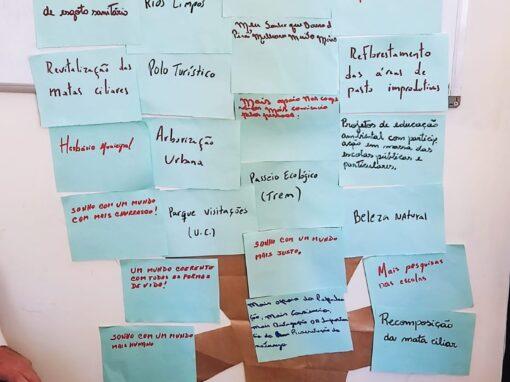 de esgoto sanitário
Rios Limpos
Meu Sonho que Barra d
Piraí Melhore Muito Mais
Reflorestamento
das áreas de
pasto improdutivas
Revitalização das
matas ciliares
Polo Turístico
Mais apoio nas
mais
Herbário Municipal
Arborização
Urbana
Projetos de educação
ambiental com particip
ação em massa das
escolas públicas e
particulares.
Passeio Ecológico
(Trem)
SONHO COM UM MUNDO
COM MAIS CHURRASCO!
Parque Visitações
(U.C.)
Beleza Natural
SONHO COM UM MUNDO
MAIS JUSTO.
UM MUNDO COERENTE
COM TODAS AS FORMAS
DE VIDA!
Mais pesquisas
nas escolas
Mais
SONHO COM UM MUNDO
MAIS HUMANO
Recomposição
da mata ciliar